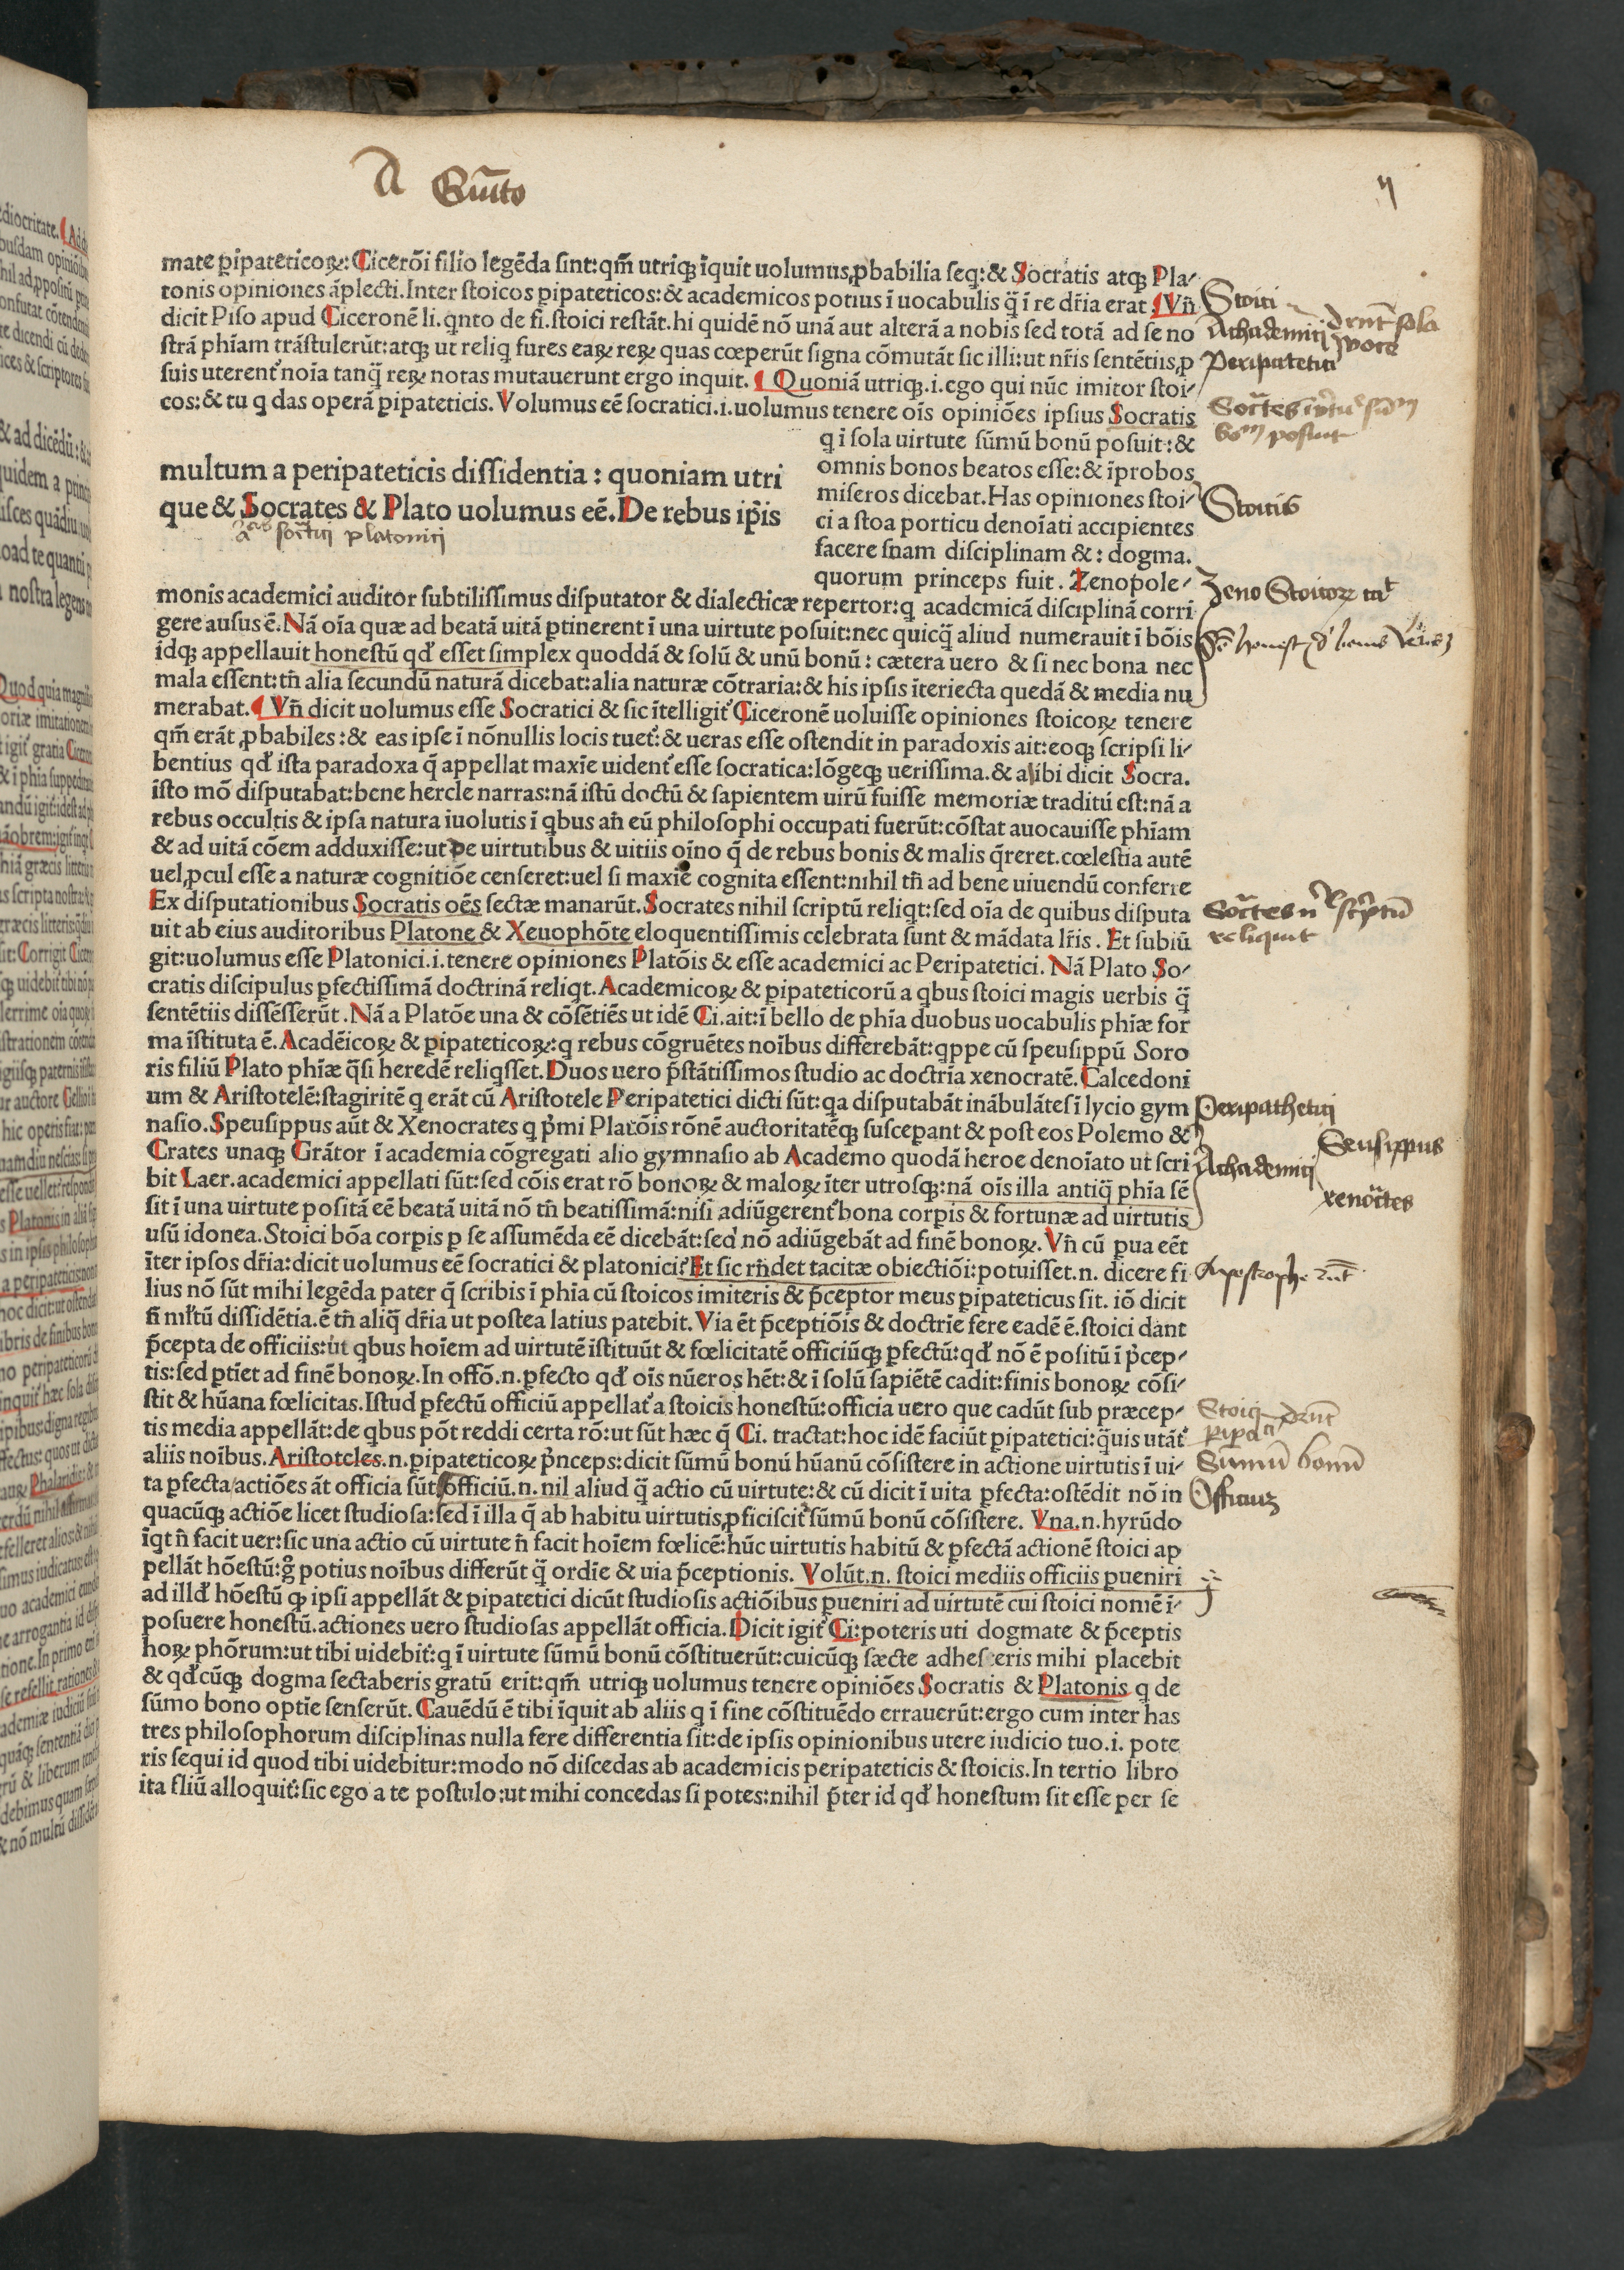 mate ꝑipateticoꝝ: Ciceroĩ filio legẽda sint: qm̃ utriqꝫ ĩquit uolumus ꝓbabilia seq: & Socratis atqꝫ Pla-
tonis opiniones ãplecti. Inter stoicos ꝑipateticos: & academicos potius ĩ uocabulis q̃ ĩ re dr̃ia erat. ¶ Vñ
dicit Piso apud Ciceronẽ li. qnto de fi. stoici restãt. hi quidẽ nõ unã aut alterã a nobis sed totã ad se no
strã phĩam trãstulerũt: atqꝫ ut reliq fures eaꝝ reꝝ quas cœperũt signa cõmutãt sic illi: ut nr̃is sentẽtiis ꝓ
suis uterent᷑ noĩa tanq̃ reꝝ notas mutauerunt ergo inquit. ¶ Quoniã utriqꝫ .i. ego qui nũc imitor stoi-
cos: & tu q das operã ꝑipateticis. Volumus eẽ socratici .i. uolumus tenere oĩs opiniões ipsius Socratis
q ĩ sola uirtute sũmũ bonũ posuit: &
omnis bonos beatos esse: & ĩprobos
miseros dicebat. Has opiniones stoi-
ci a stoa porticu denoĩati accipientes
facere suam disciplinam & : dogma.
quorum princeps fuit. Zenopole-
multum a peripateticis dissidentia : quoniam utri
que & Socrates & Plato uolumus eẽ. De rebus ip̃is
monis academici auditor subtilissimus disputator & dialecticæ repertor: q academicã disciplinã corri
gere ausus ẽ. Nã oĩa quæ ad beatã uitã ꝑtinerent ĩ una uirtute posuit: nec quicq̃ aliud numerauit ĩ bõis
idqꝫ appellauit honestũ qđ esset simplex quoddã & solũ & unũ bonũ : cætera uero & si nec bona nec
mala essent: tñ alia secundũ naturã dicebat: alia naturæ cõtraria: & his ipsis ĩteriecta quedã & media nu
merabat. ¶ Vñ dicit uolumus esse Socratici & sic ĩtelligit᷑ Ciceronẽ uoluisse opiniones stoicoꝝ tenere
qm̃ erãt ꝓbabiles : & eas ipse ĩ nõnullis locis tuet᷑: & ueras esse ostendit in paradoxis ait: eoqꝫ scripsi li-
bentius qđ ista paradoxa q̃ appellat maxĩe uident᷑ esse socratica: lõgeqꝫ uerissima. & alibi dicit Socra.
isto mõ disputabat: bene hercle narras: nã istũ doctũ & sapientem uirũ fuisse memoriæ traditũ est: nã a
rebus occultis & ipsa natura iuolutis ĩ qbus añ eũ philosophi occupati fuerũt: cõstat auocauisse phĩam
& ad uitã cõem adduxisse: ut de uirtutibus & uitiis oĩno q̃ de rebus bonis & malis q̃reret. cœlestia autẽ
uel ꝓcul esse a naturæ cognitiõe censeret: uel si maxĩe cognita essent: nihil tñ ad bene uiuendũ conferre
Ex disputationibus Socratis oẽs sectæ manarũt. Socrates nihil scriptũ reliqt: sed oĩa de quibus disputa
uit ab eius auditoribus Platone & Xeuophõte eloquentissimis celebrata sunt & mãdata lr̃is. Et subiũ
git: uolumus esse Platonici .i. tenere opiniones Platõis & esse academici ac Peripatetici. Nã Plato So-
cratis discipulus ꝑfectissimã doctrinã reliqt. Academicoꝝ & ꝑipateticorũ a qbus stoici magis uerbis q̃
sentẽtiis dissẽsserũt. Nã a Platõe una & cõsẽtiẽs ut idẽ Ci. ait: ĩ bello de phĩa duobus uocabulis phĩæ for
ma ĩstituta ẽ. Acadẽicoꝝ & ꝑipateticoꝝ: q rebus cõgruẽtes noĩbus differebãt: qppe cũ speusippũ Soro
ris filiũ Plato phĩæ q̃si heredẽ reliqsset. Duos uero p̃stãtissimos studio ac doctrĩa xenocratẽ. Calcedoni
um & Aristotelẽ: stagiritẽ q erãt cũ Aristotele Peripatetici dicti sũt: qa disputabãt inãbulãtes ĩ lycio gym
nasio. Speusippus aũt & Xenocrates q p̃mi Platõis rõnẽ auctoritatẽqꝫ suscepant & post eos Polemo &
Crates unaqꝫ Grãtor ĩ academia cõgregati alio gymnasio ab Academo quodã heroe denoĩato ut scri
bit Laer. academici appellati sũt: sed cõis erat rõ bonoꝝ & maloꝝ ĩter utrosqꝫ: nã oĩs illa antiq̃ phĩa sẽ
sit ĩ una uirtute positã eẽ beatã uitã nõ tñ beatissimã: nisi adiũgerent᷑ bona corꝑis & fortunæ ad uirtutis
usũ idonea. Stoici bõa corꝑis ꝑ se assumẽda eẽ dicebãt: sed nõ adiũgebãt ad finẽ bonoꝝ. Vñ cũ ꝑua eẽt
ĩter ipsos dr̃ia: dicit uolumus eẽ socratici & platonici? Et sic rñdet tacitæ obiectiõi: potuisset .n. dicere fi
lius nõ sũt mihi legẽda pater q̃ scribis ĩ phĩa cũ stoicos imiteris & p̃ceptor meus ꝑipateticus sit. iõ dicit
ñ ml̃tũ dissidẽtia. ẽ tñ aliq̃ dr̃ia ut postea latius patebit. Via ẽt p̃ceptiõis & doctrĩe fere eadẽ ẽ. stoici dant
p̃cepta de officiis: ut qbus hoĩem ad uirtutẽ ĩstituũt & fœlicitatẽ officiũqꝫ ꝑfectũ: qđ nõ ẽ positũ ĩ p̃cep-
tis: sed ꝑtiẽt ad finẽ bonoꝝ. In offõ .n. ꝑfecto qđ oĩs nũeros hẽt: & ĩ solũ sapiẽtẽ cadit: finis bonoꝝ cõsi-
stit & hũana fœlicitas. Istud ꝑfectũ officiũ appellat᷑ a stoicis honestũ: officia uero que cadũt sub præcep-
tis media appellãt: de qbus põt reddi certa rõ: ut sũt hæc q̃ Ci. tractat: hoc idẽ faciũt ꝑipatetici: q̃uis utãt᷑
aliis noĩbus. Aristoteles .n. ꝑipateticoꝝ p̃nceps: dicit sũmũ bonũ hũanũ cõsistere in actione uirtutis ĩ ui-
ta ꝑfecta/actiões ãt officia sũt officiũ .n. nil aliud q̃ actio cũ uirtute: & cũ dicit ĩ uita ꝑfecta: ostẽdit nõ in
quacũqꝫ actiõe licet studiosa: sed ĩ illa q̃ ab habitu uirtutis ꝓficiscit᷑ sũmũ bonũ cõsistere. Vna .n. hyrũdo
ĩqt ñ facit uer: sic una actio cũ uirtute ñ facit hoĩem fœlicẽ: hũc uirtutis habitũ & ꝑfectã actionẽ stoici ap
pellãt hõestũ: g̊ potius noĩbus differũt q̃ ordĩe & uia p̃ceptionis. Volũt .n. stoici mediis officiis ꝑueniri
ad illđ hõestũ qꝫ ipsi appellãt & ꝑipatetici dicũt studiosis actiõibus ꝑueniri ad uirtutẽ cui stoici nomẽ ĩ-
posuere honestũ. actiones uero studiosas appellãt officia. Dicit igit᷑ Ci: poteris uti dogmate & p̃ceptis
hoꝝ phõrum: ut tibi uidebit᷑: q ĩ uirtute sũmũ bonũ cõstituerũt: cuicũqꝫ sæcte adheseris mihi placebit
& qđcũqꝫ dogma sectaberis gratũ erit: qm̃ utriqꝫ uolumus tenere opiniões Socratis & Platonis q de
sũmo bono optĩe senserũt. Cauẽdũ ẽ tibi ĩquit ab aliis q ĩ fine cõstituẽdo errauerũt: ergo cum inter has
tres philosophorum disciplinas nulla fere differentia sit: de ipsis opinionibus utere iudicio tuo .i. pote
ris sequi id quod tibi uidebitur: modo nõ discedas ab academicis peripateticis & stoicis. In tertio libro
ita fliũ alloquit᷑: sic ego a te postulo: ut mihi concedas si potes: nihil p̃ter id qđ honestum sit esse per se
Stoici
Achademicij
Peripatetici
Stoicis
Peripathetici
Achademicij
Seusippus
Officium